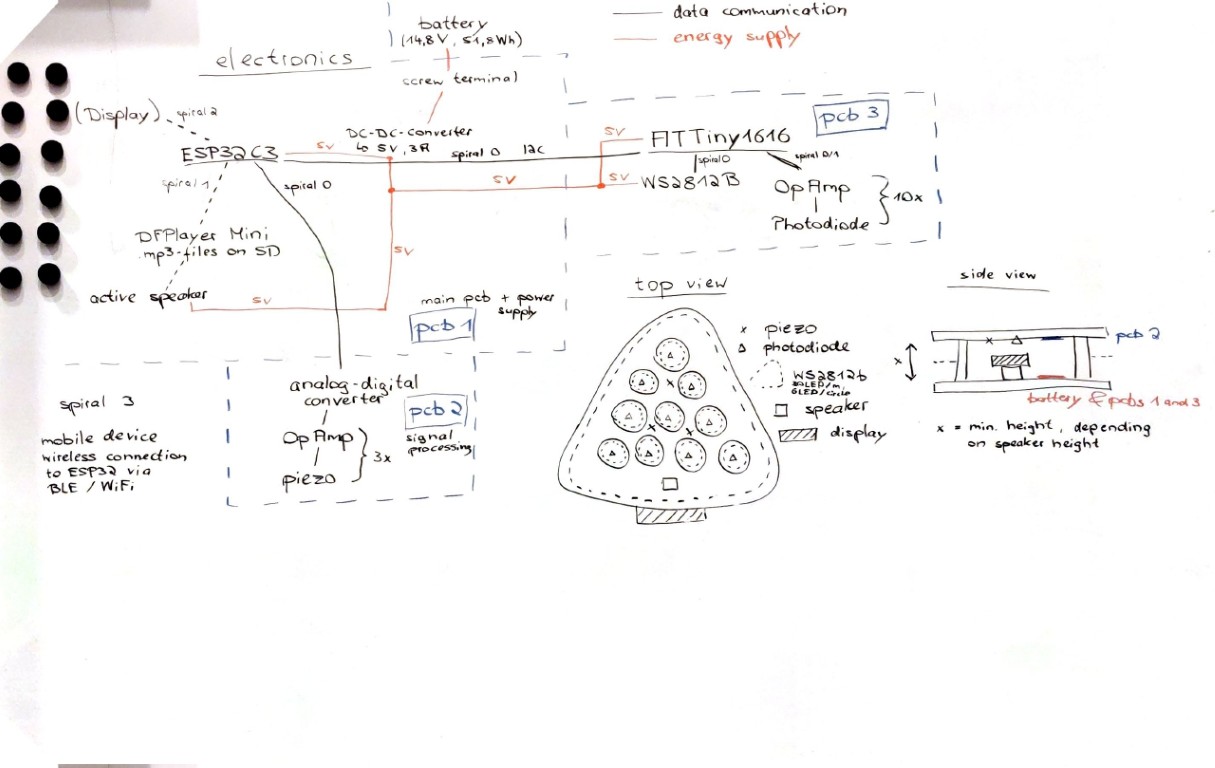 data communication
energy supply
battery
(14,8V, 51,8Wh)
electronics
screw terminal
(Display)
spiral 2
DC-DC-converter
to 5V, 3A
ESP32C3
5V
spiral 0 I2C
5V
ATTiny1616
pcb 3
spiral 0
spiral 0/1
5V
5V
WS2812B
OpAmp
10x
Photodiode
spiral 1
spiral 0
DFPlayer Mini
mp3-files on SD
5V
active speaker
5V
main pcb + power
supply
pcb 1
top view
side view
x piezo
photodiode
WS2812b
6LED/Circle
speaker
display
pcb 2
x
battery & pcbs 1 and 3
x = min. height, depending
on speaker height
analog-digital
converter
pcb 2
OpAmp
3x
signal
processing
piezo
spiral 3
mobile device
wireless connection
to ESP32 via
BLE / WiFi